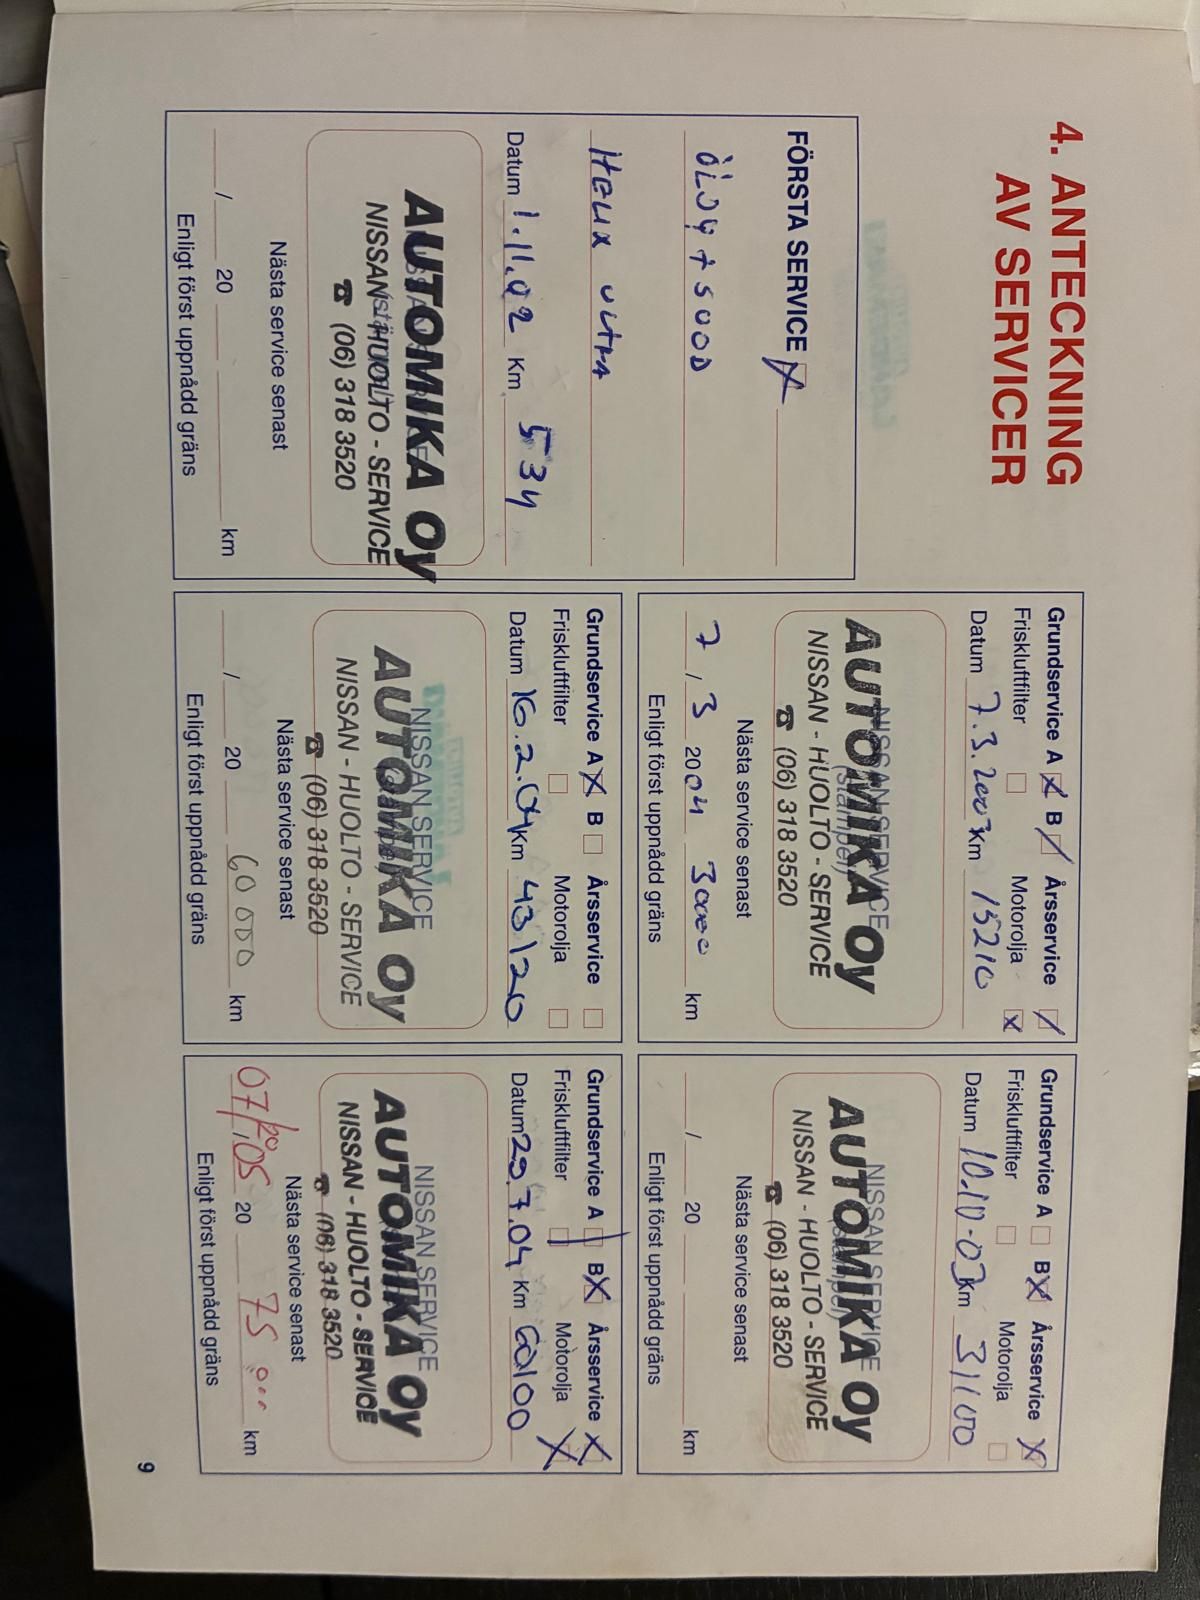 4. ANTECKNING
AV SERVICER
FÖRSTA SERVICE X
ÖLJY + SUOD
HELIX ULTRA
Datum 1.11.02 Km 534
NISSAN SERVICE
AUTOMIKA Oy
NISSAN - HUOLTO - SERVICE
☎ (06) 318 3520
Nästa service senast
/ 20 km
Enligt först uppnådd gräns
Grundservice A X B / Årsservice /
Friskluftfilter Motorolja X
Datum 7.3.2003 Km 15210
NISSAN SERVICE
(stämpel)
AUTOMIKA Oy
NISSAN - HUOLTO - SERVICE
☎ (06) 318 3520
Nästa service senast
7 / 3 2004 30000 km
Enligt först uppnådd gräns
Grundservice A B X Årsservice X
Friskluftfilter Motorolja
Datum 10.10-03 Km 31100
NISSAN SERVICE
(stämpel)
AUTOMIKA Oy
NISSAN - HUOLTO - SERVICE
☎ (06) 318 3520
Nästa service senast
/ 20 km
Enligt först uppnådd gräns
Grundservice A X B Årsservice
Friskluftfilter Motorolja
Datum 16.2.04 Km 43120
NISSAN SERVICE
AUTOMIKA Oy
NISSAN - HUOLTO - SERVICE
☎ (06) 318 3520
Nästa service senast
/ 20 60 000 km
Enligt först uppnådd gräns
Grundservice A B X Årsservice X
Friskluftfilter Motorolja X
Datum 29.7.04 Km 60100
NISSAN SERVICE
AUTOMIKA Oy
NISSAN - HUOLTO - SERVICE
☎ (06) 318 3520
Nästa service senast
07/05 20 75 000 km
Enligt först uppnådd gräns
9